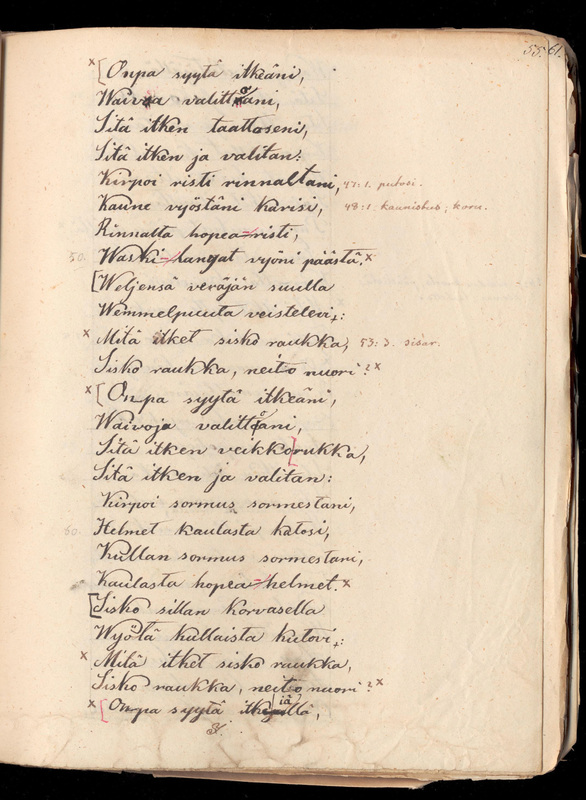 55. 61.
× [Onpa syytä itkeäni,
Waivoa valittoani,
Sitä itken taattoseni,
Sitä itken ja valitan:
Kirpoi risti rinnaltani, 47:1. putosi.
Kaune vyöstäni karisi, 48:1. kaunishus, koru.
Rinnalta hopea-risti,
50. Waski-langat vyöni päästä.×
[Weljensä veräjän suulla
Wemmelpuuta veistelevi,:
× Mitä itket sisko raukka, 53:3. sisar.
Sisko raukka, neito nuori?×
× [Onpa syytä itkeäni,
Waivoja valittoani,
Sitä itken veikko[rukka,
Sitä itken ja valitan:
Kirpoi sormus sormestani,
60. Helmet kaulasta katosi,
Kullan sormus sormestani,
Kaulasta hopea-helmet.×
[Sisko sillan korvasella
Wyötä kullaista kutovi,:
× Mitä itket sisko raukka,
Sisko raukka, neito nuori?×
× [Onpa syytä itkiällä,